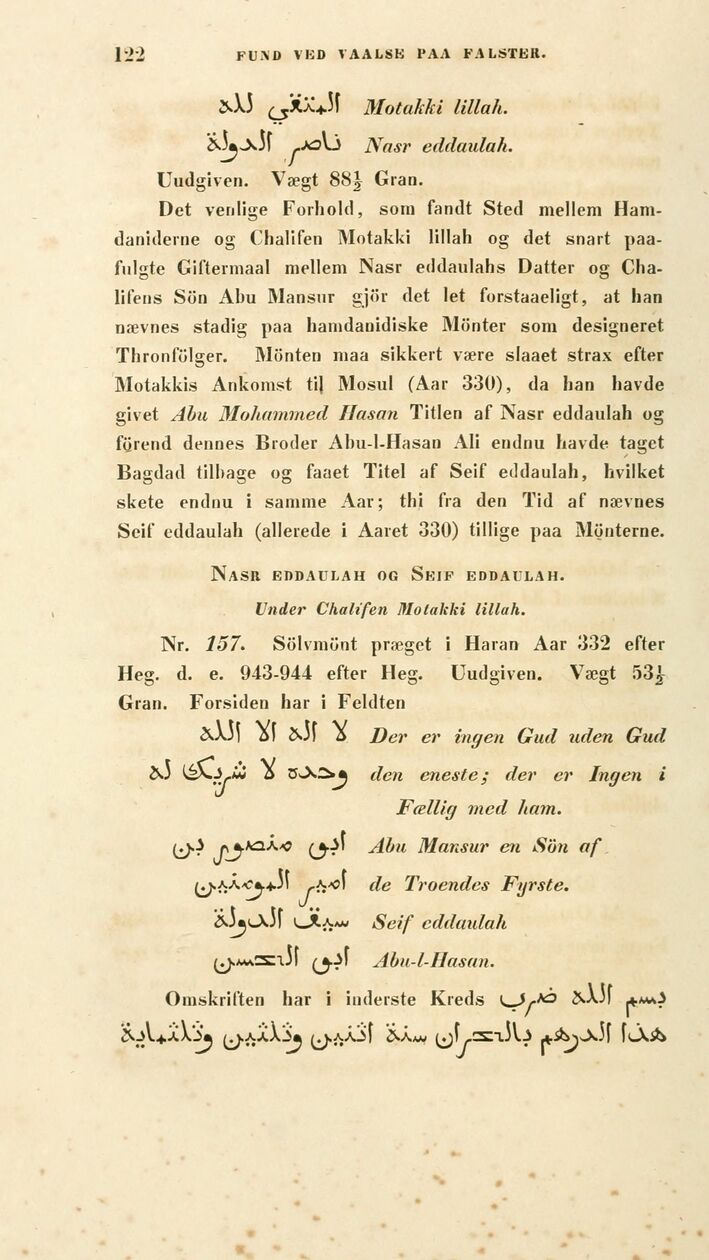 122 FUND VED VAALSE PAA FALSTER.
المتقي لله Motakki lillah.
ناصر الدولة Nasr eddaulah.
Uudgiven. Vægt 88½ Gran.
Det venlige Forhold, som fandt Sted mellem Ham-
daniderne og Chalifen Motakki lillah og det snart paa-
fulgte Giftermaal mellem Nasr eddaulahs Datter og Cha-
lifens Sön Abu Mansur gjör det let forstaaeligt, at han
nævnes stadig paa hamdanidiske Mönter som designeret
Thronfölger. Mönten maa sikkert være slaaet strax efter
Motakkis Ankomst til Mosul (Aar 330), da han havde
givet Abu Mohammed Hasan Titlen af Nasr eddaulah og
förend dennes Broder Abu-l-Hasan Ali endnu havde taget
Bagdad tilbage og faaet Titel af Seif eddaulah, hvilket
skete endnu i samme Aar; thi fra den Tid af nævnes
Seif eddaulah (allerede i Aaret 330) tillige paa Mönterne.
NASR EDDAULAH OG SEIF EDDAULAH.
Under Chalifen Motakki lillah.
Nr. 157. Sölvmönt præget i Haran Aar 332 efter
Heg. d. e. 943-944 efter Heg. Uudgiven. Vægt 53½
Gran. Forsiden har i Feldten
لا اله الا الله Der er ingen Gud uden Gud
وحده لا شريك له den eneste; der er Ingen i
Fællig med ham.
ابو منصور بن Abu Mansur en Sön af
امير المومنين de Troendes Fyrste.
سيف الدولة Seif eddaulah
ابو الحسن Abu-l-Hasan.
Omskriften har i inderste Kreds بسم الله ضرب
هذا الدرهم بالحران سنة اثنين وثلثين وثلثماية